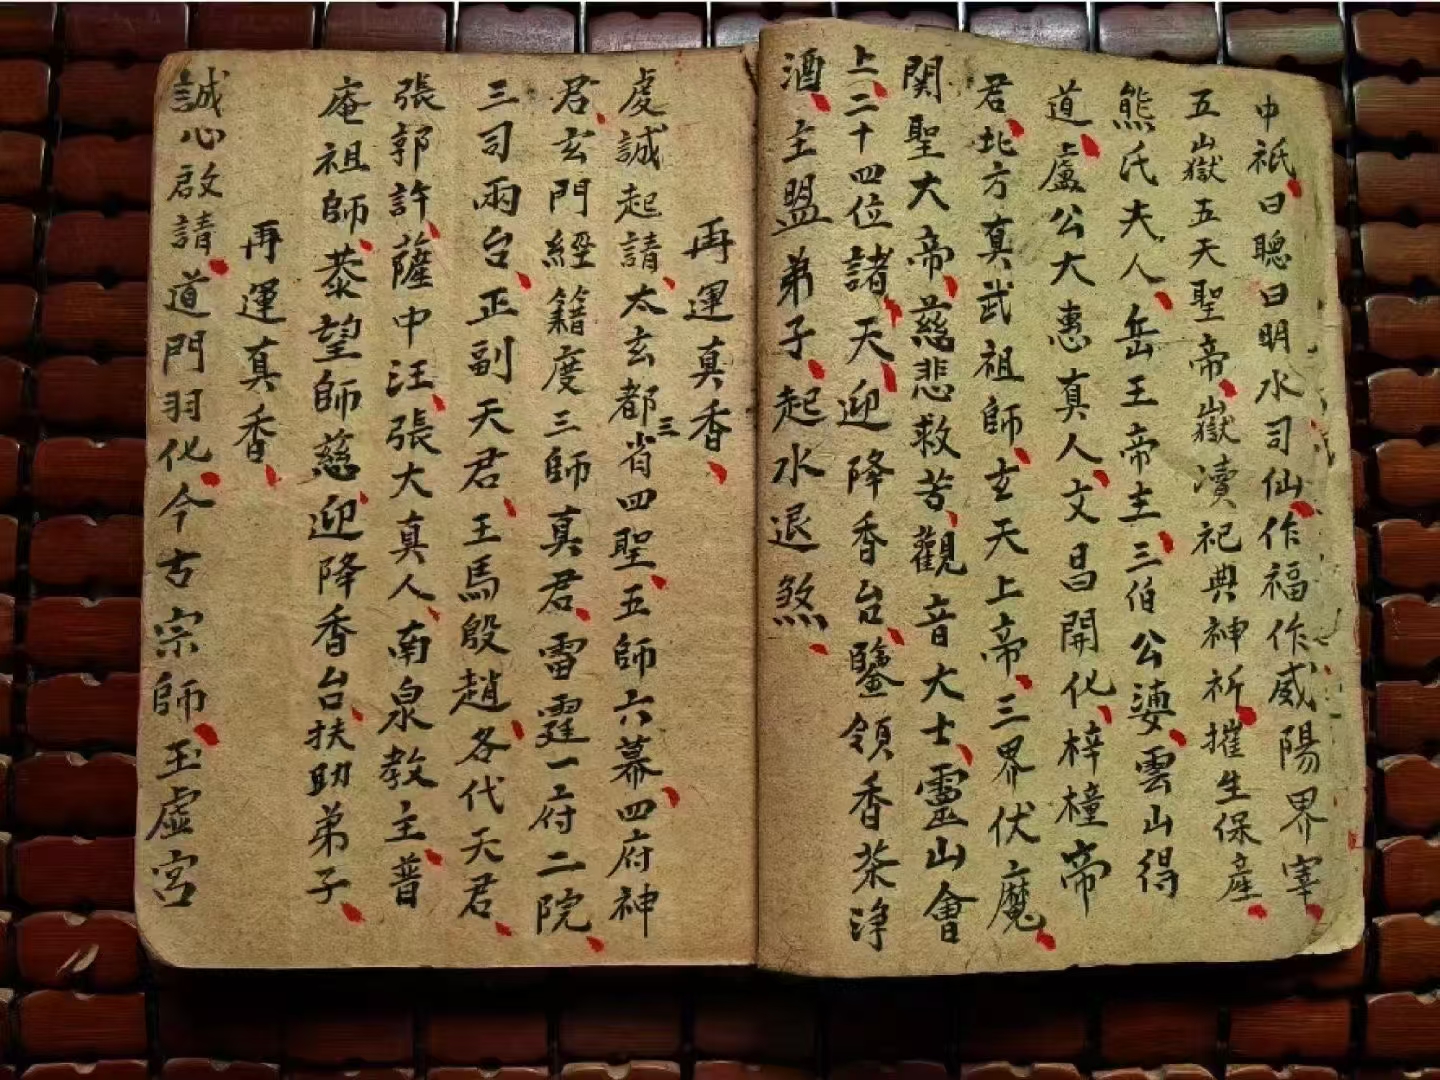 中祇曰聰曰明水司仙作福作威陽界宰
五山嶽五天聖帝嶽瀆祀典神祈摧生保產
熊氏夫人岳王帝主三伯公婆雲山得
道盧公大惠真人文昌開化梓橦帝
君北方真武祖師玄天上帝三界伏魔
関聖大帝慈悲救苦觀音大士靈山會
上二十四位諸天迎降香台鑒領香茶淨
酒主盟弟子起水退煞
再運真香
虔誠起請太玄都三省四聖五師六幕四府神
君玄門經籍度三師真君雷霆一府二院
三司兩台正副天君王馬殷趙各代天君
張郭許薩中汪張大真人南泉教主普
庵祖師恭望師慈迎降香台扶助弟子
再運真香
誠心啟請道門羽化今古宗師玉虛宮